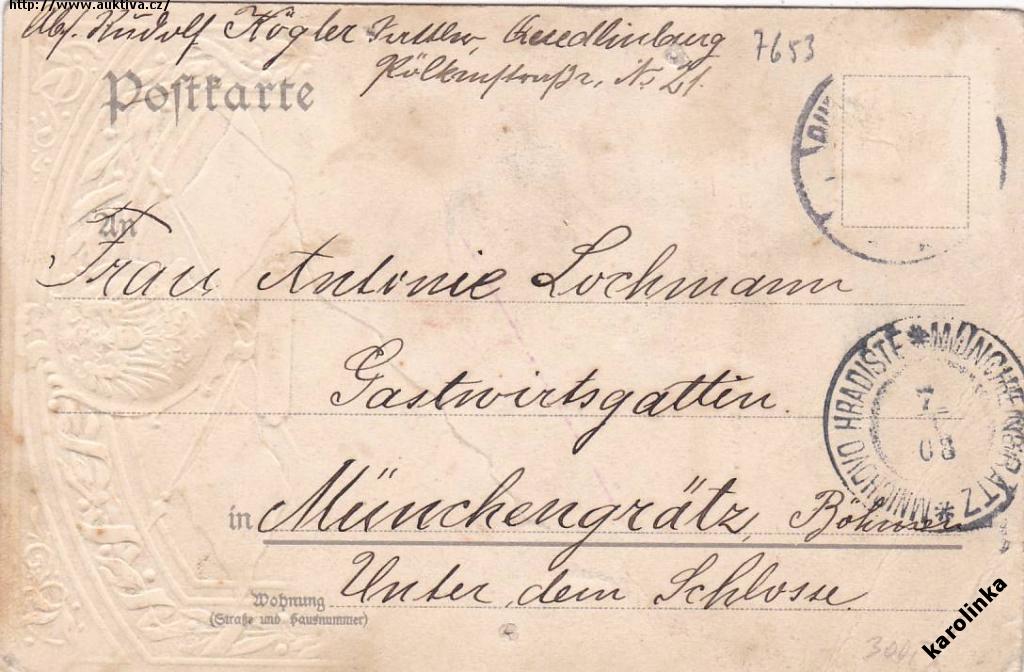 http://www.auktiva.cz/
Abs. Rudolf Kögler Quedlinburg
Pölkenstraße, No 21.
7653
Postkarte
An
Frau Antonie Lochmann
Gastwirtsgattin.
in Münchengrätz, Böhmen
Unter dem Schlosse.
Wohnung
(Straße und Hausnummer)
* MÜNCHENGRÄTZ * MNICHOVO HRADISTE
7
08
karolinka